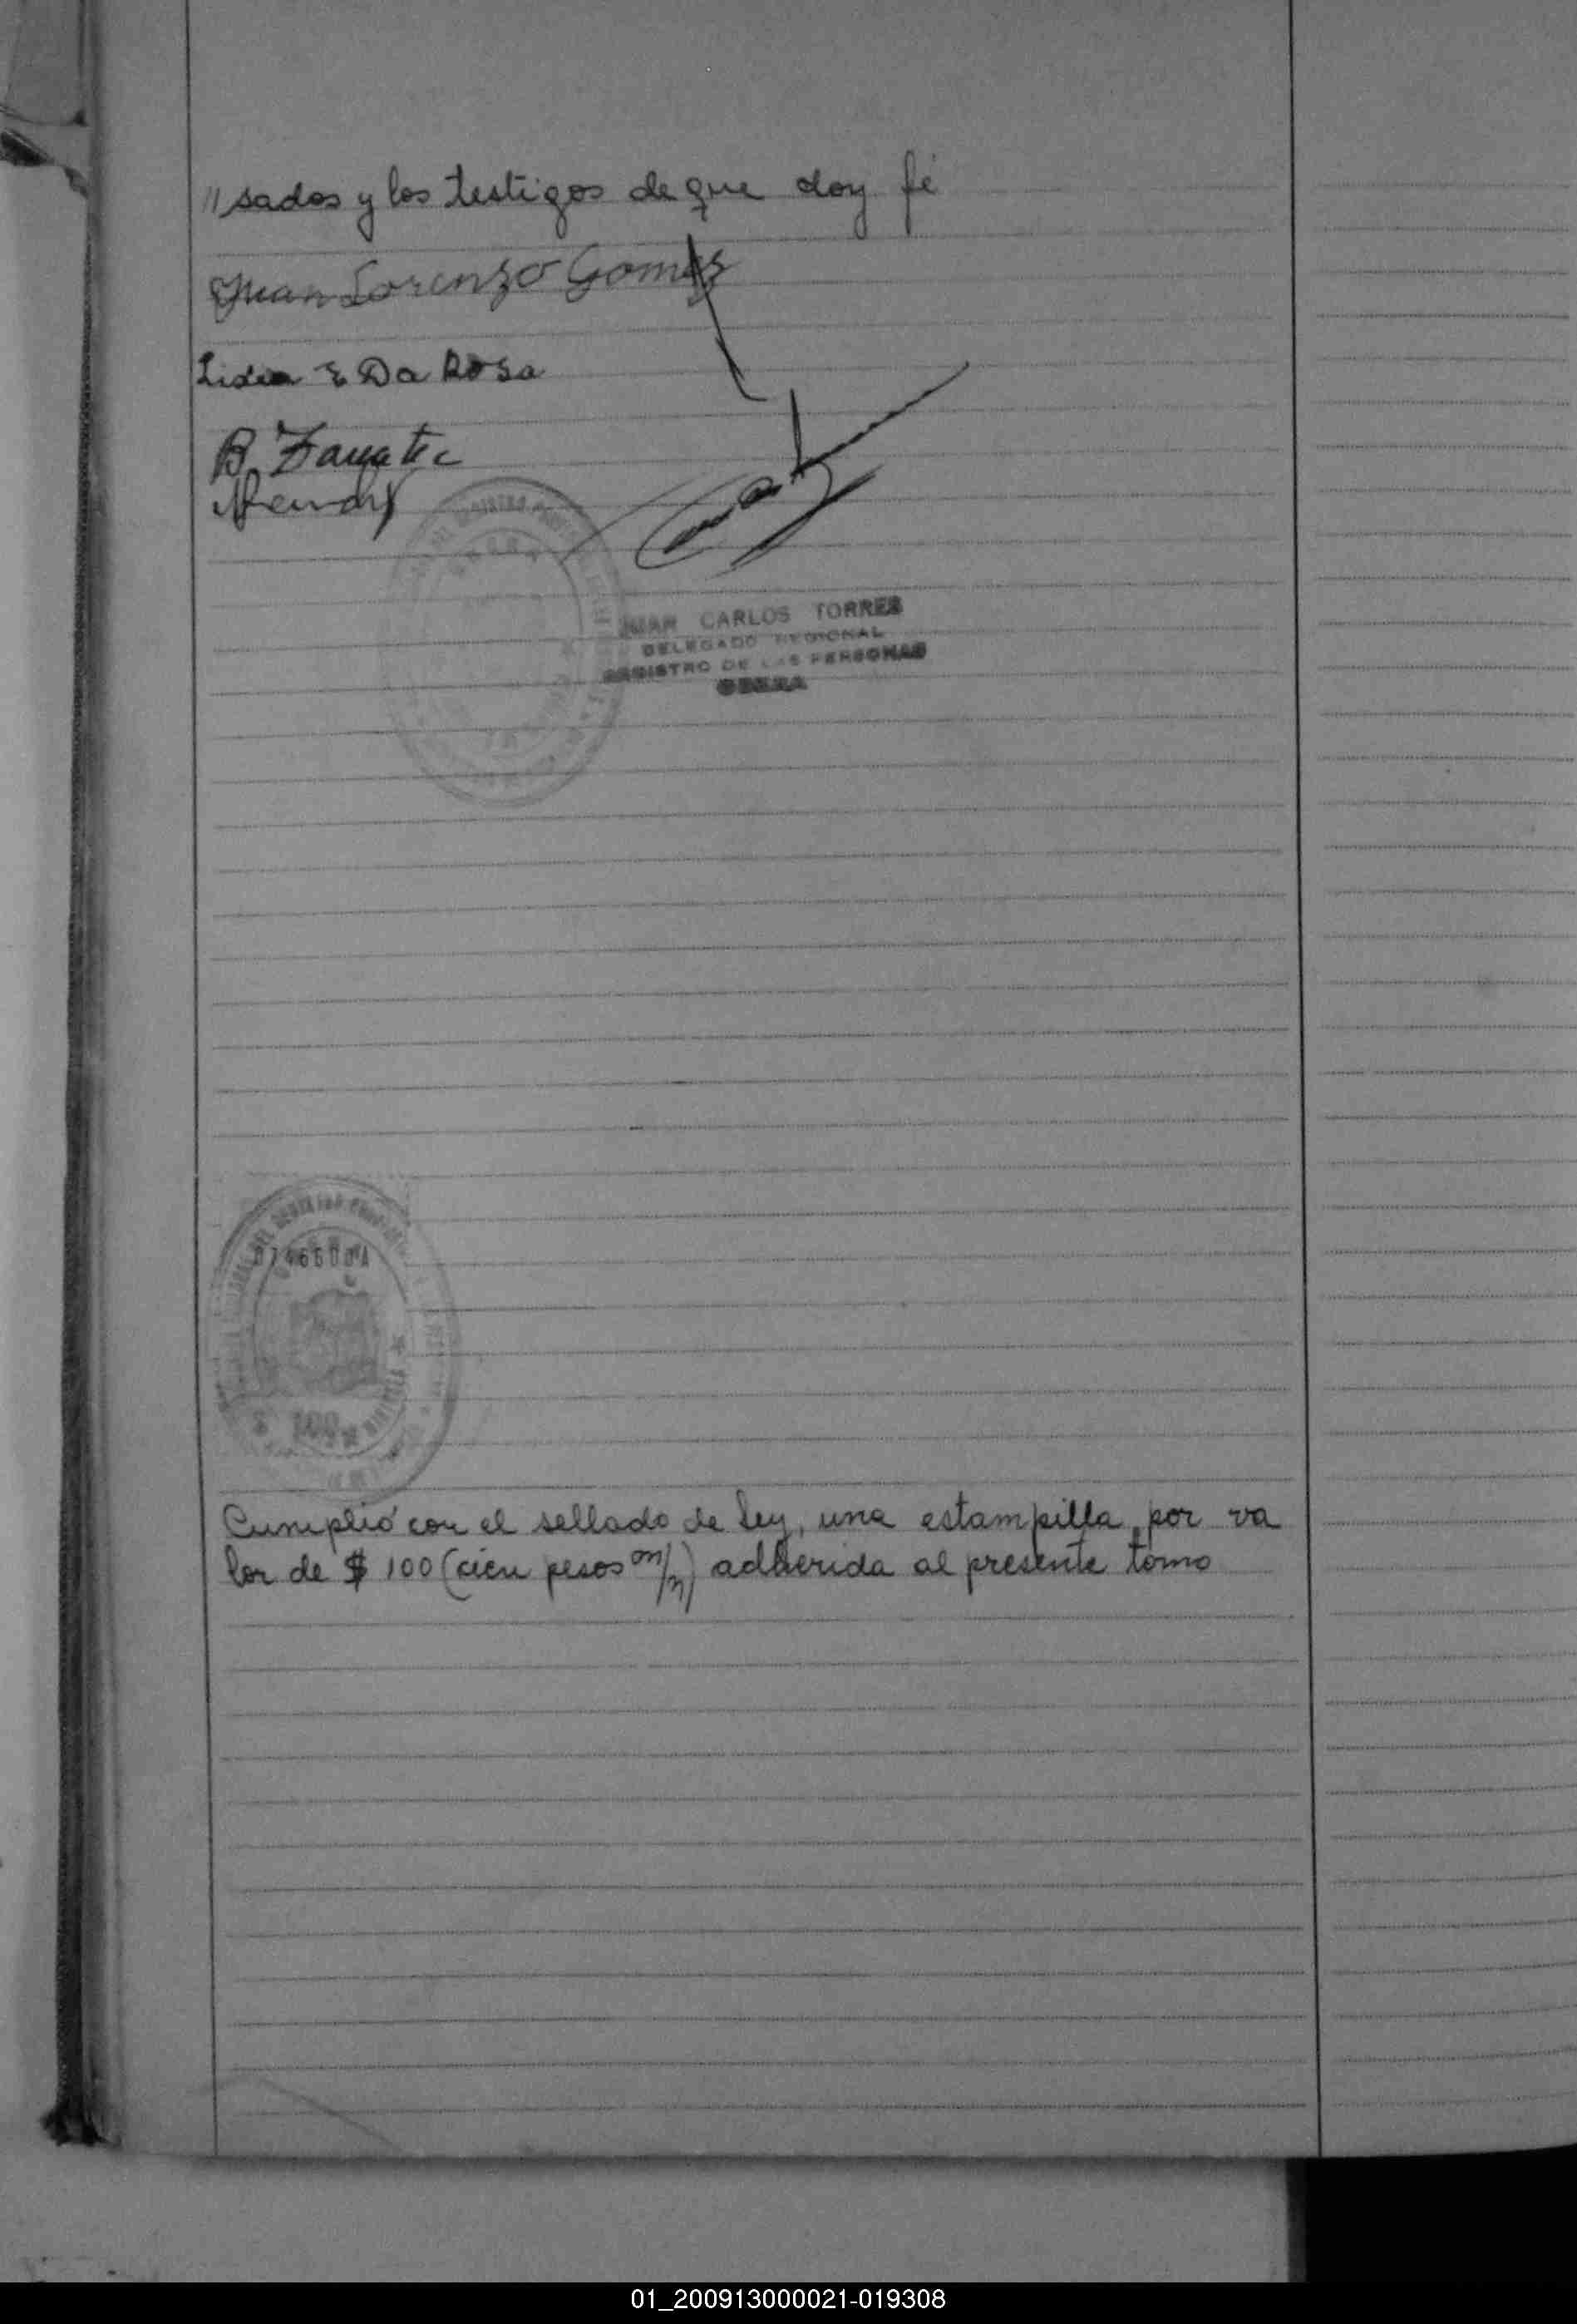 "sados y los testigos de que doy fé
Juan Lorenzo Gomez
Lidia E Da Rosa
B.
JUAN CARLOS TORRES
DELEGADO REGIONAL
REGISTRO DE LAS PERSONAS
OBERA
$ 100
Cumplió con el sellado de ley, una estampilla por va
lor de $ 100 (cien pesos m/n) adherida al presente tomo
01_200913000021-019308